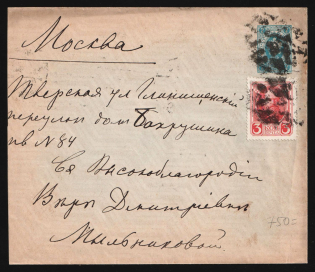 Москва
Тверская ул Глинищенскій
переулок дом Бахрушина
кв N 84
Ея Высокоблагородію
Вѣры Дмитріевны
Мыльниковой
3 3
750=